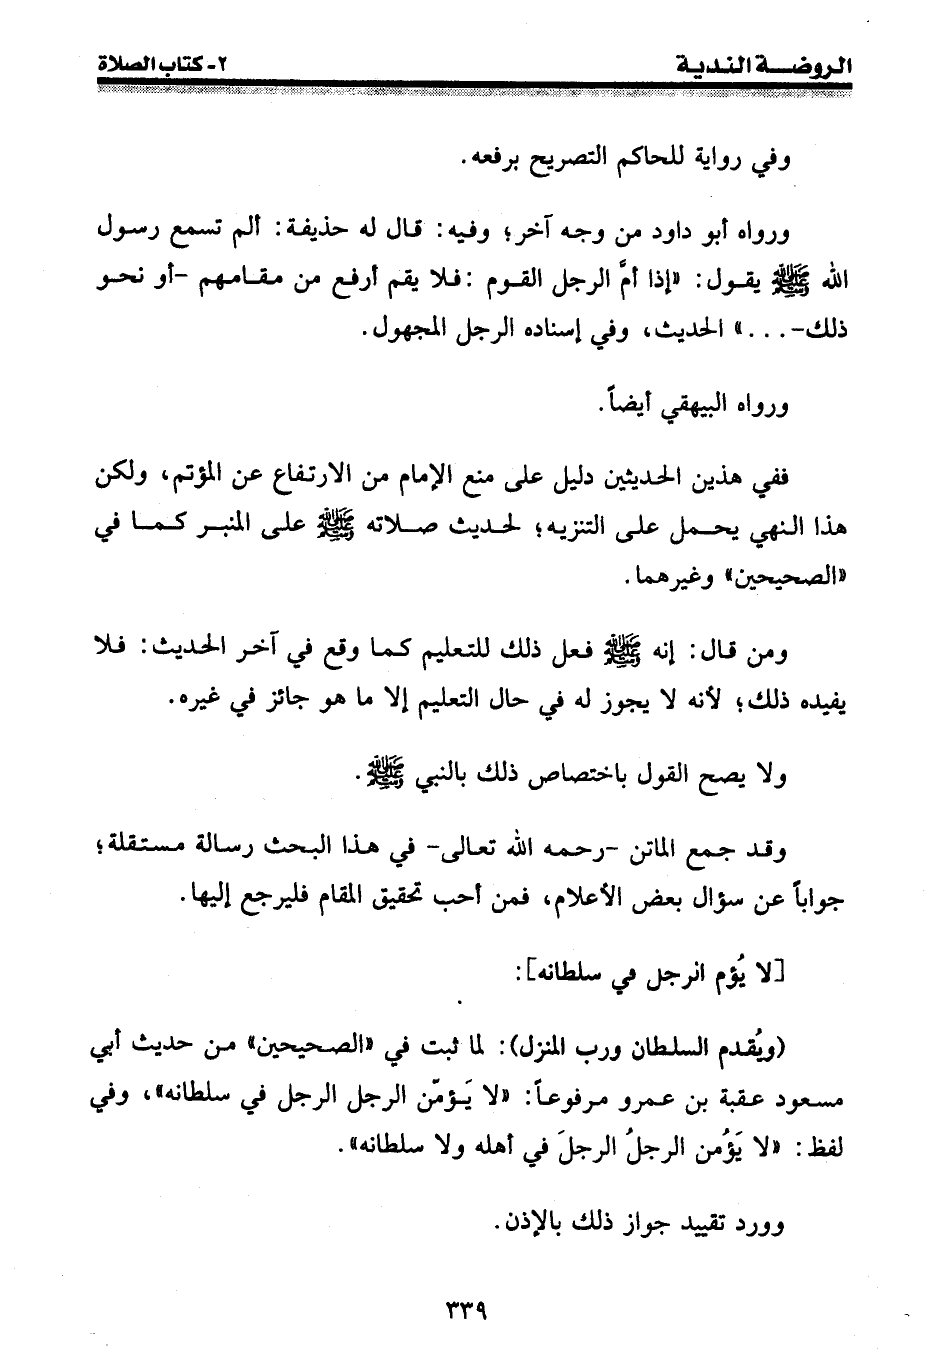 الروضة الندية
٢- كتاب الصلاة
وفي رواية للحاكم التصريح برفعه.
ورواه أبو داود من وجه آخر؛ وفيه: قال له حذيفة: ألم تسمع رسول
الله ﷺ يقول: «إذا أمَّ الرجل القوم :فلا يقم أرفع من مقامهم -أو نحو
ذلك-...» الحديث، وفي إسناده الرجل المجهول.
ورواه البيهقي أيضاً.
ففي هذين الحديثين دليل على منع الإمام من الارتفاع عن المؤتم، ولكن
هذا النهي يحمل على التنزيه؛ لحديث صلاته ﷺ على المنبر كما في
«الصحيحين» وغيرهما.
ومن قال: إنه ﷺ فعل ذلك للتعليم كما وقع في آخر الحديث: فلا
يفيده ذلك؛ لأنه لا يجوز له في حال التعليم إلا ما هو جائز في غيره.
ولا يصح القول باختصاص ذلك بالنبي ﷺ.
وقد جمع الماتن -رحمه الله تعالى- في هذا البحث رسالة مستقلة؛
جواباً عن سؤال بعض الأعلام، فمن أحب تحقيق المقام فليرجع إليها.
[لا يُؤم الرجل في سلطانه]:
(ويُقدم السلطان ورب المنزل): لما ثبت في «الصحيحين» من حديث أبي
مسعود عقبة بن عمرو مرفوعاً: «لا يَؤمّن الرجل الرجل في سلطانه»، وفي
لفظ: «لا يَؤُمن الرجلُ الرجلَ في أهله ولا سلطانه».
وورد تقييد جواز ذلك بالإذن.
٣٣٩